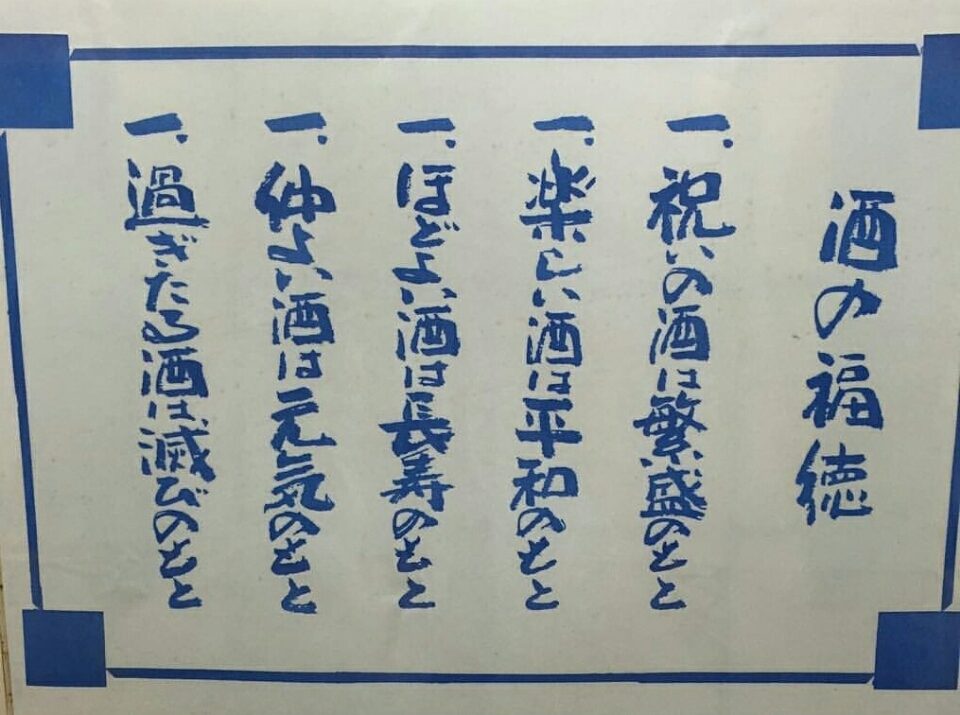 酒の福徳
一.祝いの酒は繁盛のもと
一.楽しい酒は平和のもと
一.ほどよい酒は長寿のもと
一.仲よい酒は元気のもと
一.過ぎたる酒は滅びのもと